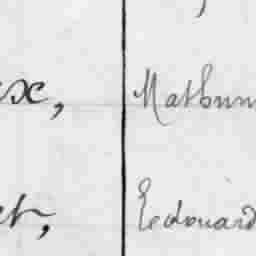 ex, Mathurin
et, Edouard